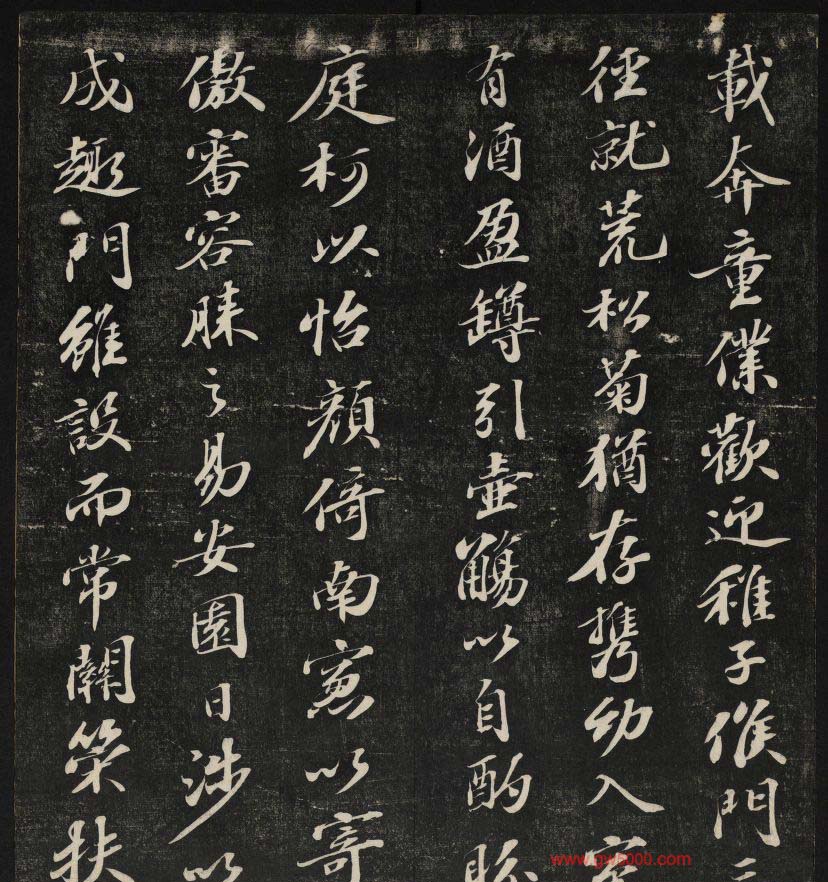 載奔童僕歡迎稚子候門三
徑就荒松菊猶存携幼入室
有酒盈罇引壺觴以自酌眄
庭柯以怡顏倚南窻以寄
傲審容膝之易安園日涉以
成趣門雖設而常關策扶